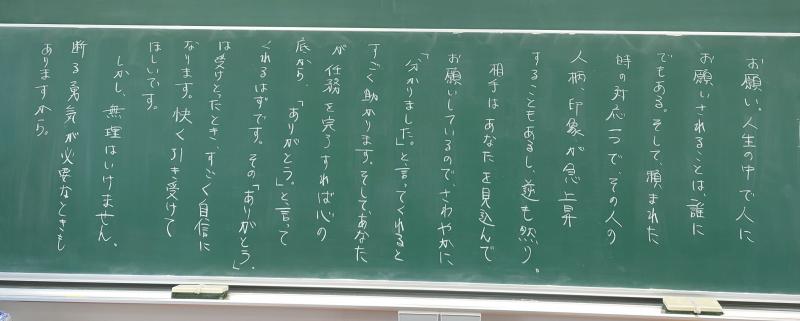 お願い。人生の中で人に
お願いされることは、誰に
でもある。そして、頼まれた
時の対応一つで、その人の
人柄、印象が急上昇
することもあるし、逆も然り。
相手はあなたを見込んで
お願いしているので、さわやかに、
「分かりました。」と言ってくれると
すごく助かります。そして、あなた
が任務を完了すれば心の
底から、「ありがとう。」と言って
くれるはずです。その「ありがとう。」
は受けとったとき、すごく自信に
なります。快く引き受けて
ほしいです。
しかし、無理はいけません。
断る勇気が必要なときも
ありますから。